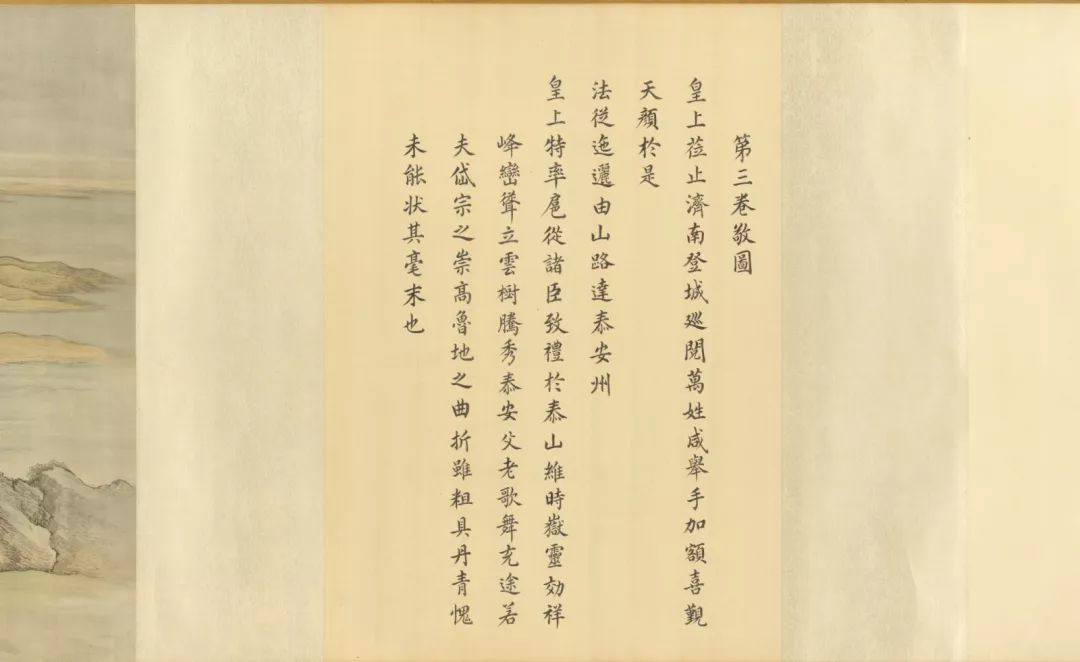 第三卷敬圖
皇上蒞止濟南登城廵閱萬姓咸舉手加額喜覲
天顏於是
法從迤邐由山路達泰安州
皇上特率扈從諸臣致禮於泰山維時嶽靈効祥
峰巒聳立雲樹騰秀泰安父老歌舞充途若
夫岱宗之崇髙魯地之曲折雖粗具丹青愧
未能状其毫末也